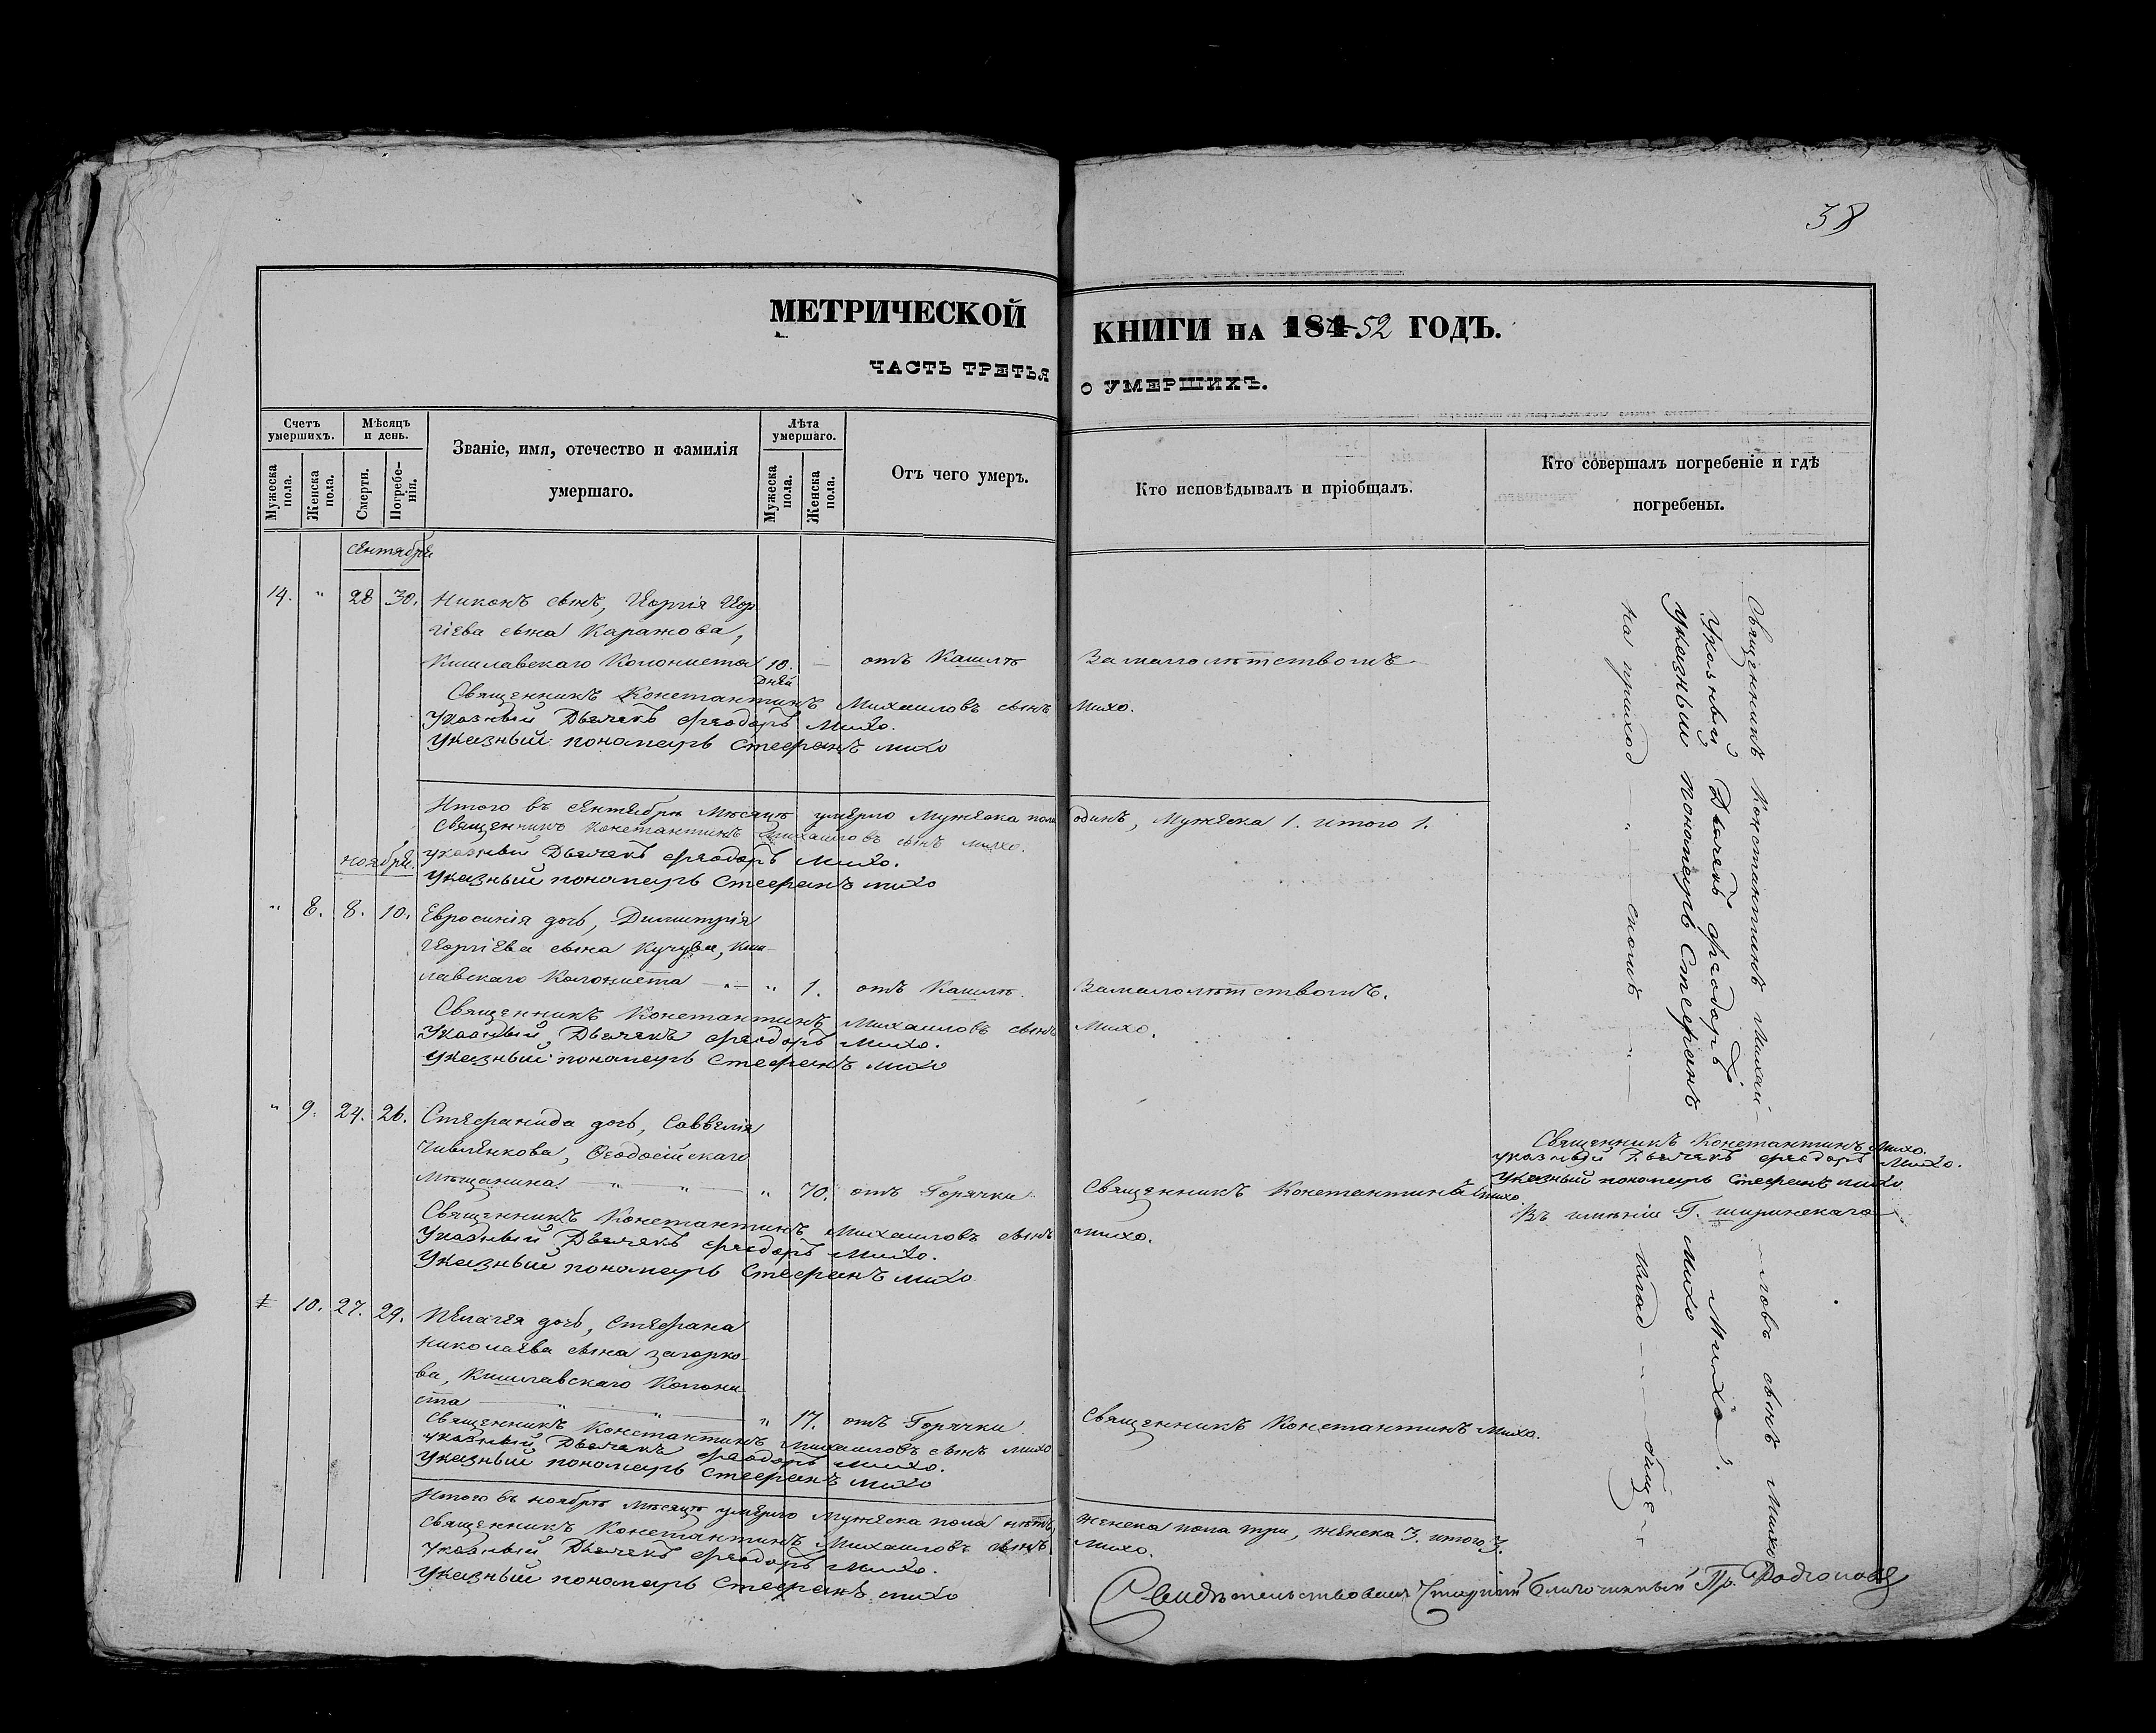 38
МЕТРИЧЕСКОЙ КНИГИ НА 184 52 ГОДЪ.
ЧАСТЬ ТРЕТЬЯ О УМЕРШИХЪ.
Счетъ умершихъ.
Мужеска пола.
Женска пола.
Мѣсяцъ и день.
Смерти.
Погребе-нія.
Званіе, имя, отечество и фамилія
умершаго.
Лѣта умершаго.
Мужеска пола.
Женска пола.
Отъ чего умеръ.
Кто исповѣдывалъ и пріобщалъ.
Кто совершалъ погребеніе и гдѣ
погребены.
Сентябрь
14. " 28 30. Никонъ сынъ, Георгія Геор
гіева сына Каражова,
Кишлавскаго Колониста 10. дней — отъ Кашля За малолѣтствомъ
Священникъ Константинъ Михаиловъ сынъ Михо.
Указный Дьячекъ Феодоръ Михо.
Указный пономарь Стефанъ Михо
Итого въ Сентябрѣ Мѣсяцѣ умерло Мужеска пола одинъ, Мужеска 1. итого 1.
Священникъ Константинъ Михаиловъ сынъ Михо.
Указный Дьячекъ Феодоръ Михо.
Указный пономарь Стефанъ Михо
Ноябрь.
" 8. 8. 10. Евросинія дочь, Димитрія
Георгіева сына Кучува, Киш-
лавскаго Колониста " 1. отъ Кашля. За малолѣтствомъ.
Священникъ Константинъ Михаиловъ сынъ Михо.
Указный Дьячекъ Феодоръ Михо.
Указный пономарь Стефанъ Михо
" 9. 24. 26. Стефанида дочь, Саввелія
Чивленкова, Ѳеодосійскаго
Мѣщанина " " " 70. отъ Горячки Священникъ Константинъ Михо.
Священникъ Константинъ Михаиловъ сынъ Михо.
Указный Дьячекъ Феодоръ Михо.
Указный пономарь Стефанъ Михо
10. 27. 29. Пелагея дочь, Стефана
Николаева сына Загорко-
ва, Кишлавскаго Колони
ста " " " 17. отъ Горячки Священникъ Константинъ Михо.
Священникъ Константинъ Михаиловъ сынъ Михо
Указный Дьячекъ Феодоръ Михо.
Указный пономарь Стефанъ Михо
Итого въ Ноябрѣ Мѣсяцѣ умерло Мужеска пола нѣтъ, Женска пола три, Женска 3. итого 3.
Священникъ Константинъ Михаиловъ сынъ Михо.
Указный Дьячекъ Феодоръ Михо.
Указный пономарь Стефанъ Михо
Священникъ Константинъ Михаи-ловъ сынъ Михо
Указный Дьячекъ Феодоръ Михо.
Указный пономарь Стефанъ Михо
На приход " скомъ " Клад
Священникъ Константинъ Михо.
Указный Дьячекъ Феодоръ Михо.
Указный пономарь Стефанъ Михо
Въ имѣніи Г. Ширинскаго
Свидѣтельствовалъ Старшій Благочинный Пр. Родионовъ